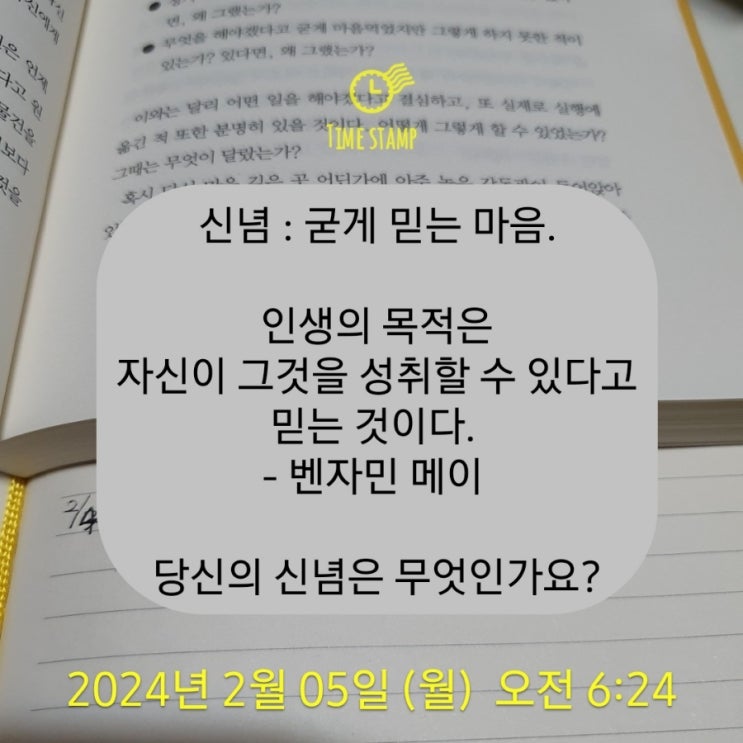 면, 왜 그랬는가?
● 무엇을 해야겠다고 굳게 마음먹었지만 그렇게 하지 못한 적이
있는가? 있다면, 왜 그랬는가?
이와는 달리 어떤 일을 해야겠다고 결심하고, 또 실제로 실행에
옮긴 적 또한 분명히 있을 것이다. 어떻게 그렇게 할 수 있었는가?
그때는 무엇이 달랐는가?
혹시 마음 깊은 곳 어딘가에 아주 높은
은 언제
다고 원
물건을
보다
것을
TIME STAMP
신념 : 굳게 믿는 마음.
인생의 목적은
자신이 그것을 성취할 수 있다고
믿는 것이다.
- 벤자민 메이
당신의 신념은 무엇인가요?
2024년 2월 05일 (월) 오전 6:24